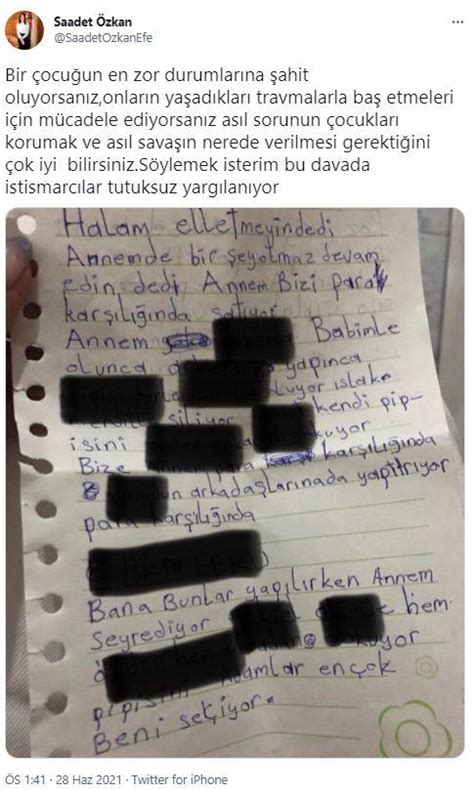 Saadet Özkan
@SaadetOzkanEfe
Bir çocuğun en zor durumlarına şahit
oluyorsanız,onların yaşadıkları travmalarla baş etmeleri
için mücadele ediyorsanız asıl sorunun çocukları
korumak ve asıl savaşın nerede verilmesi gerektiğini
çok iyi bilirsiniz.Söylemek isterim bu davada
istismarcılar tutuksuz yargılanıyor
Halam elletmeyindedi
Annemde bir şeyolmaz devam
edin dedi Annem Bizi para
karşılığında satıyor
Annem Babimle
olunca yapınca
islake
siliyor kendi pip-
isini
Bize Annem para karşılığında
arkadaşlarınada yaptırıyor
para karşılığında
Bana Bunlar yapılırken Annem
Seyrediyor hem
pipisini Adamlar ençok
Beni seçiyor.
ÖS 1:41 · 28 Haz 2021 · Twitter for iPhone